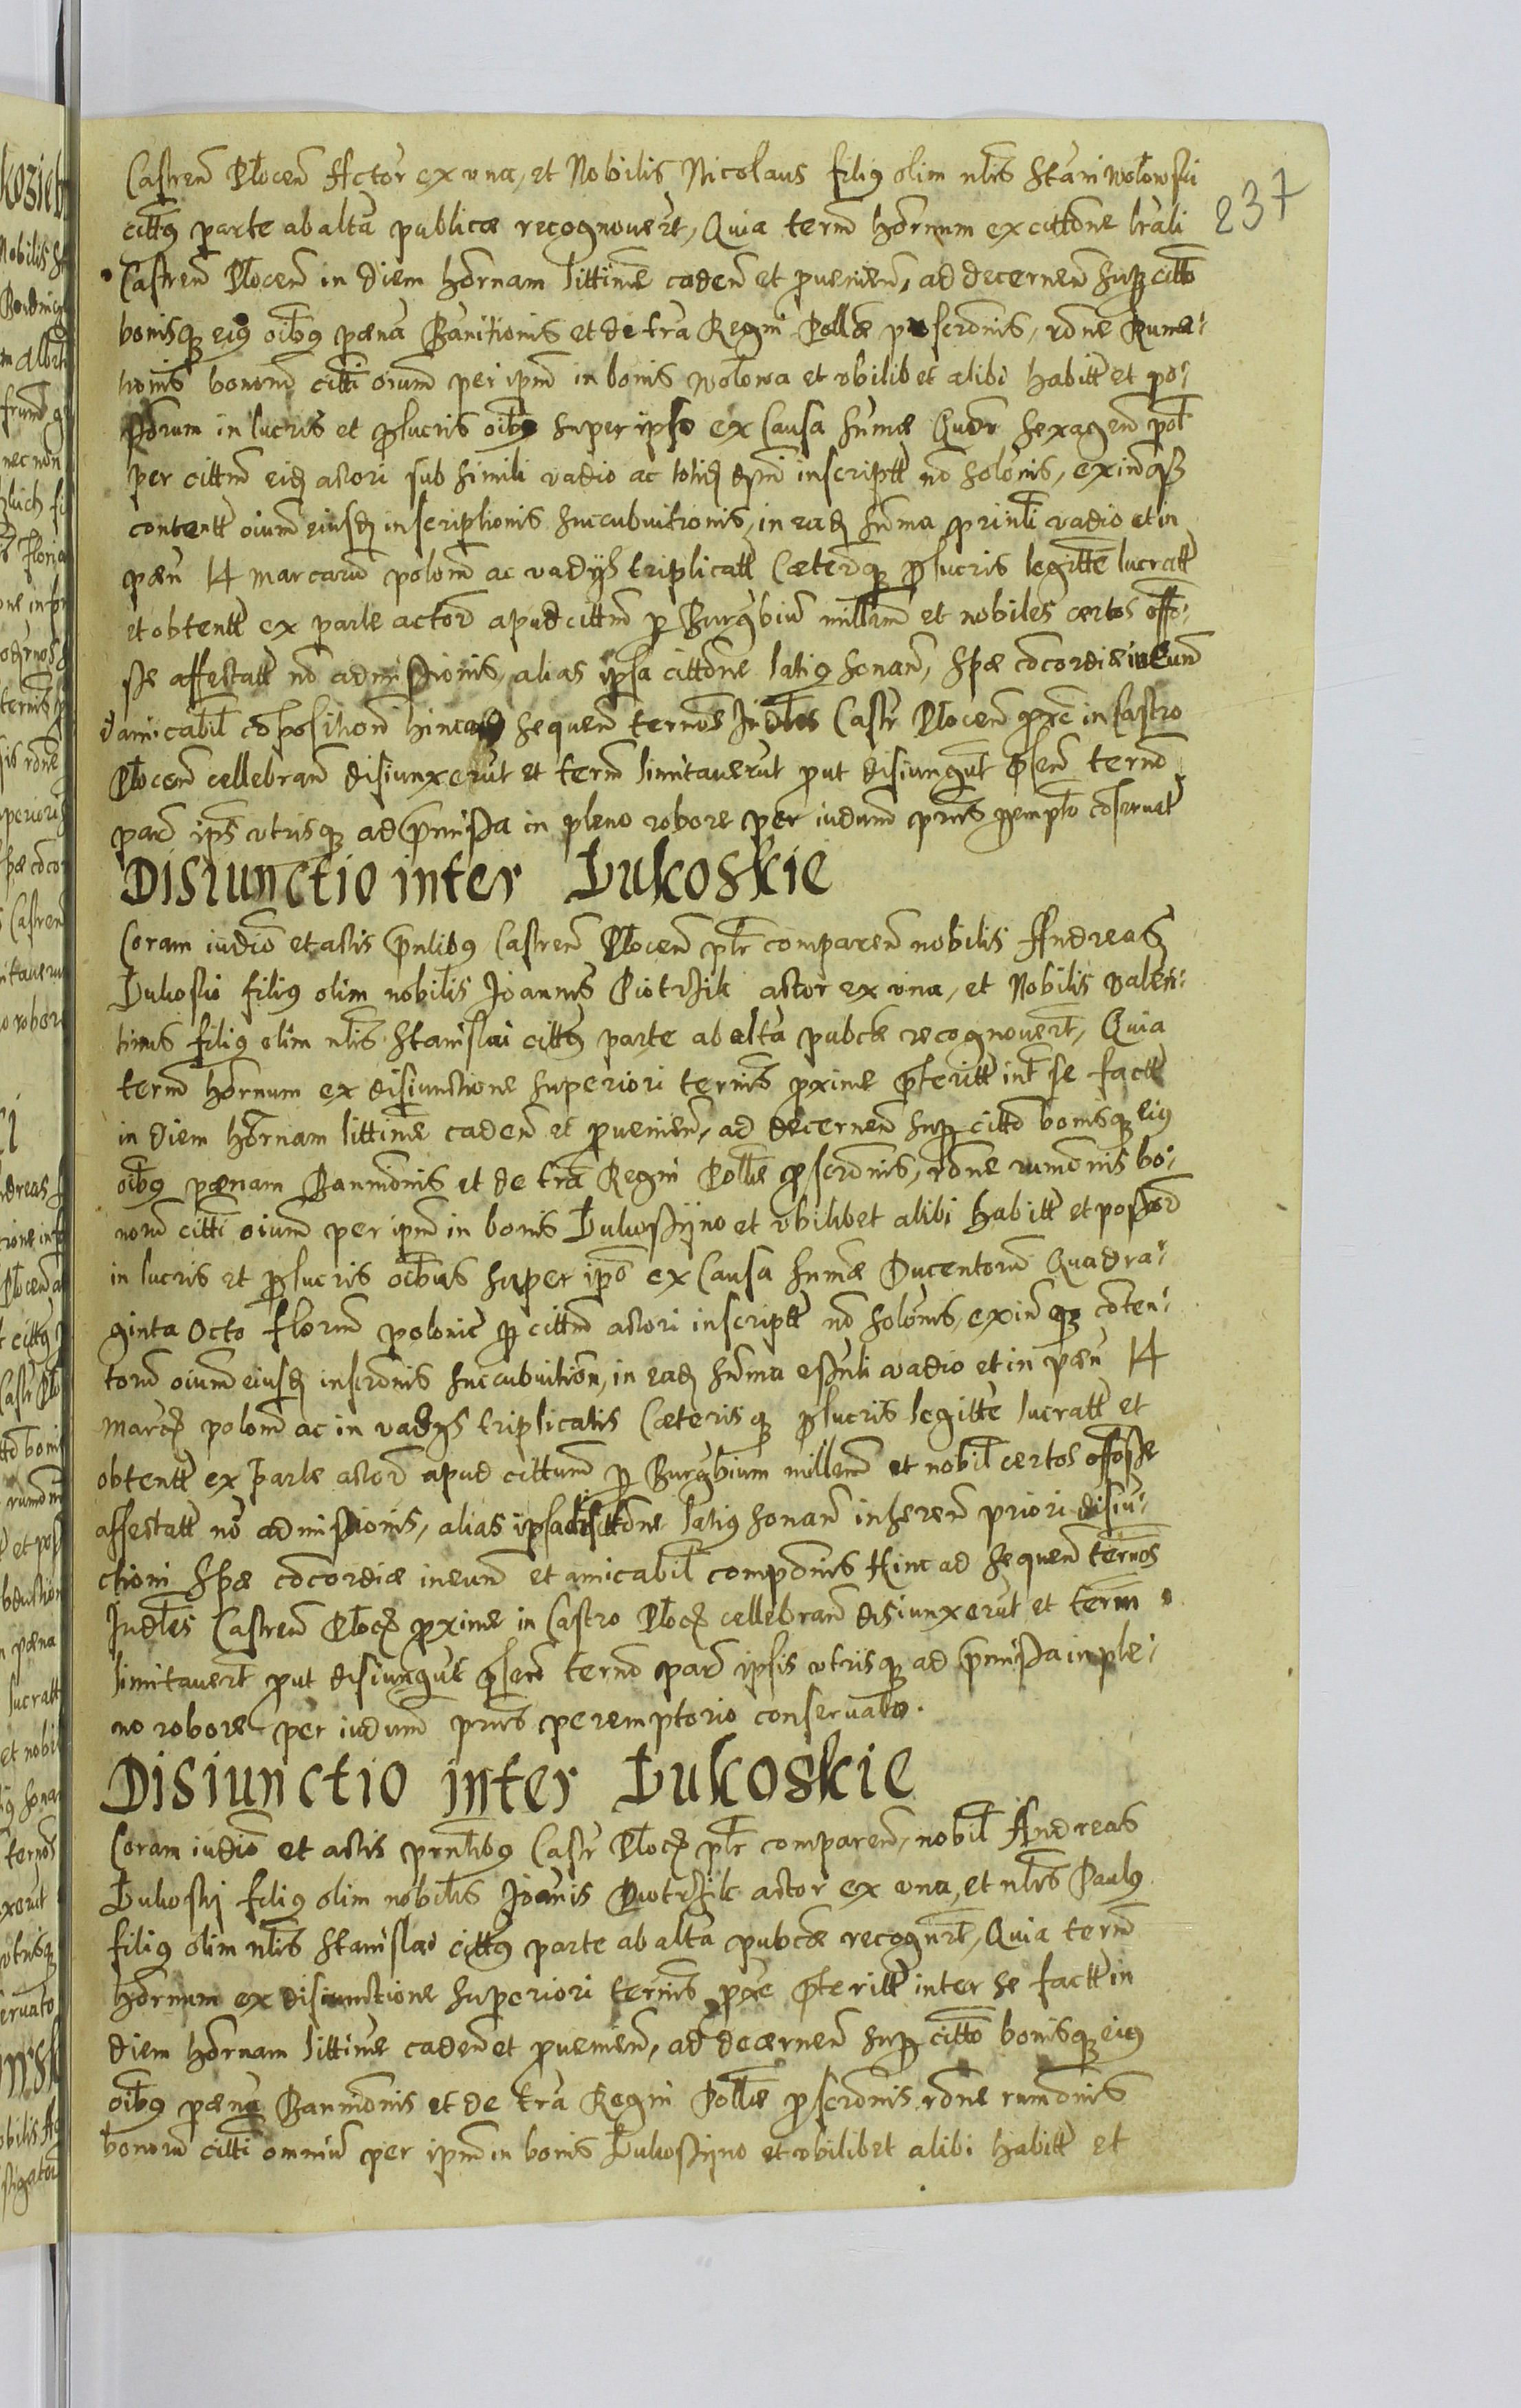 Castren Płocen Actor ex una, et Nobilis Nicolaus filius olim nlis Stani Wołowski
237
cittus parte ab alta publicæ recognovert, Quia term hornum ex cittone lrali
Castren Płocen in diem hornam littime caden et pvenien, ad decernen sup citto
bonisq eius oibus pæna Banitionis et de tra Regni Pollæ pscronis, rone Ruma-
tionis bonorum citti oium per ipm in bonis Wołowa et ubilibet alibi habitt et po-
ssorum in lucris et plucris oibus super ipso ex Causa summæ Quadr sexagen pol
per cittum eid actori sub simili vadio ac totid dni inscriptt no solonis, exindq
contentt oium eiusd inscriptionis succubuitionis, in ead summa prinli vadio et in
pæn 14 marcarum polon ac vadys triplicatt Cæterq plucris legittme lucratt
et obtentt ex parte actor apud cittum p Burgbium millem et nobiles certos offo-
sse affectatt no admissionis, alias ipsa cittone latius sonan, Spæ concordiæ ineun
et amicabil compositionem hinc ad sequen ternos Judles Castr Płocen pxe in Castro
Płocen cellebran disiunxerut et term limitaverut put disiungut psen termo
par ips utrisq ad pmissa in pleno robore per iudum prns pempto conservat
Disiunctio inter Łukoskie
Coram iudio et actis pntibus Castren Płocen pltr comparen nobilis Andreas
Łukoski filius olim nobilis Joannis Piotrzik actor ex una, et Nobilis Valen-
tinus filius olim nlis Stanislai cittus parte ab alta pubcæ recognovert, Quia
term hornum ex disiunctione superiori ternis pxime pteritt int se factt
in diem hornam littime caden et pvenien, ad decernen sup citto bonisq eius
oibus pænam Bannonis et de tra Regni Pollæ pscronis, rone rumonis bo-
norum citti oium per ipm in bonis Łukossyno et ubilibet alibi habitt et possor
in lucris et plucris oibus super ipso ex Causa summæ Ducentorum Quadra-
ginta Octo florum polonic p cittum actori inscriptt no solonis, exin q conten-
torum oium eiusd inscronis succubuition, in ead summa essnli vadio et in pæn 14
marc polon ac in vadys triplicatis Cæterisq plucris legitte lucratt et
obtentt ex parte actor apud cittum p Burgbium millem et nobil certos offosse
affectatt no admissionis, alias ipsa cittone latius sonan inheren priori disiu-
ctioni Spæ concordiæ ineun et amicabil componis Hinc ad sequen ternos
Judles Castren Płoc pxime in Castro Płoc cellebran disiunxerut et term
limitavert put disiungut psen termo par ipsis utrisq ad pmissa in ple-
no robore per iudum prns peremptorio conservato.
Disiunctio inter Łukoskie
Coram iudio et actis prntibus Castr Płoc pltr comparen, nobil Andreas
Łukoski filius olim nobilis Joanis Piotrzik actor ex una, et nlis Paulus
filius olim nlis Stanislai cittus parte ab alta pubcæ recognrt, Quia term
hornum ex disiunctione superiori ternis pxe pteritt inter se factt in
diem hornam littime caden et pvenien, ad decernen sup citto bonisq eius
oibus pæna Bannonis et de tra Regni Pollæ pscronis rone rumonis
bonorum citti omnium per ipm in bonis Łukossyno et ubilibet alibi habitt et